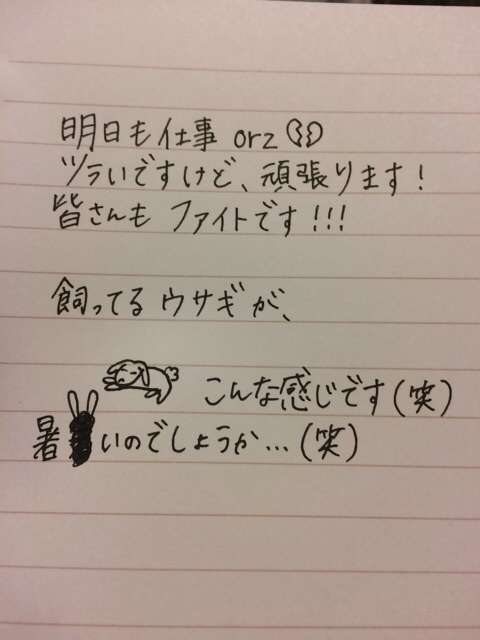 明日も仕事 orz
ツラいですけど、頑張ります!
皆さんも ファイトです!!!
飼ってる ウサギが、
こんな感じです(笑)
暑いのでしょうか…(笑)